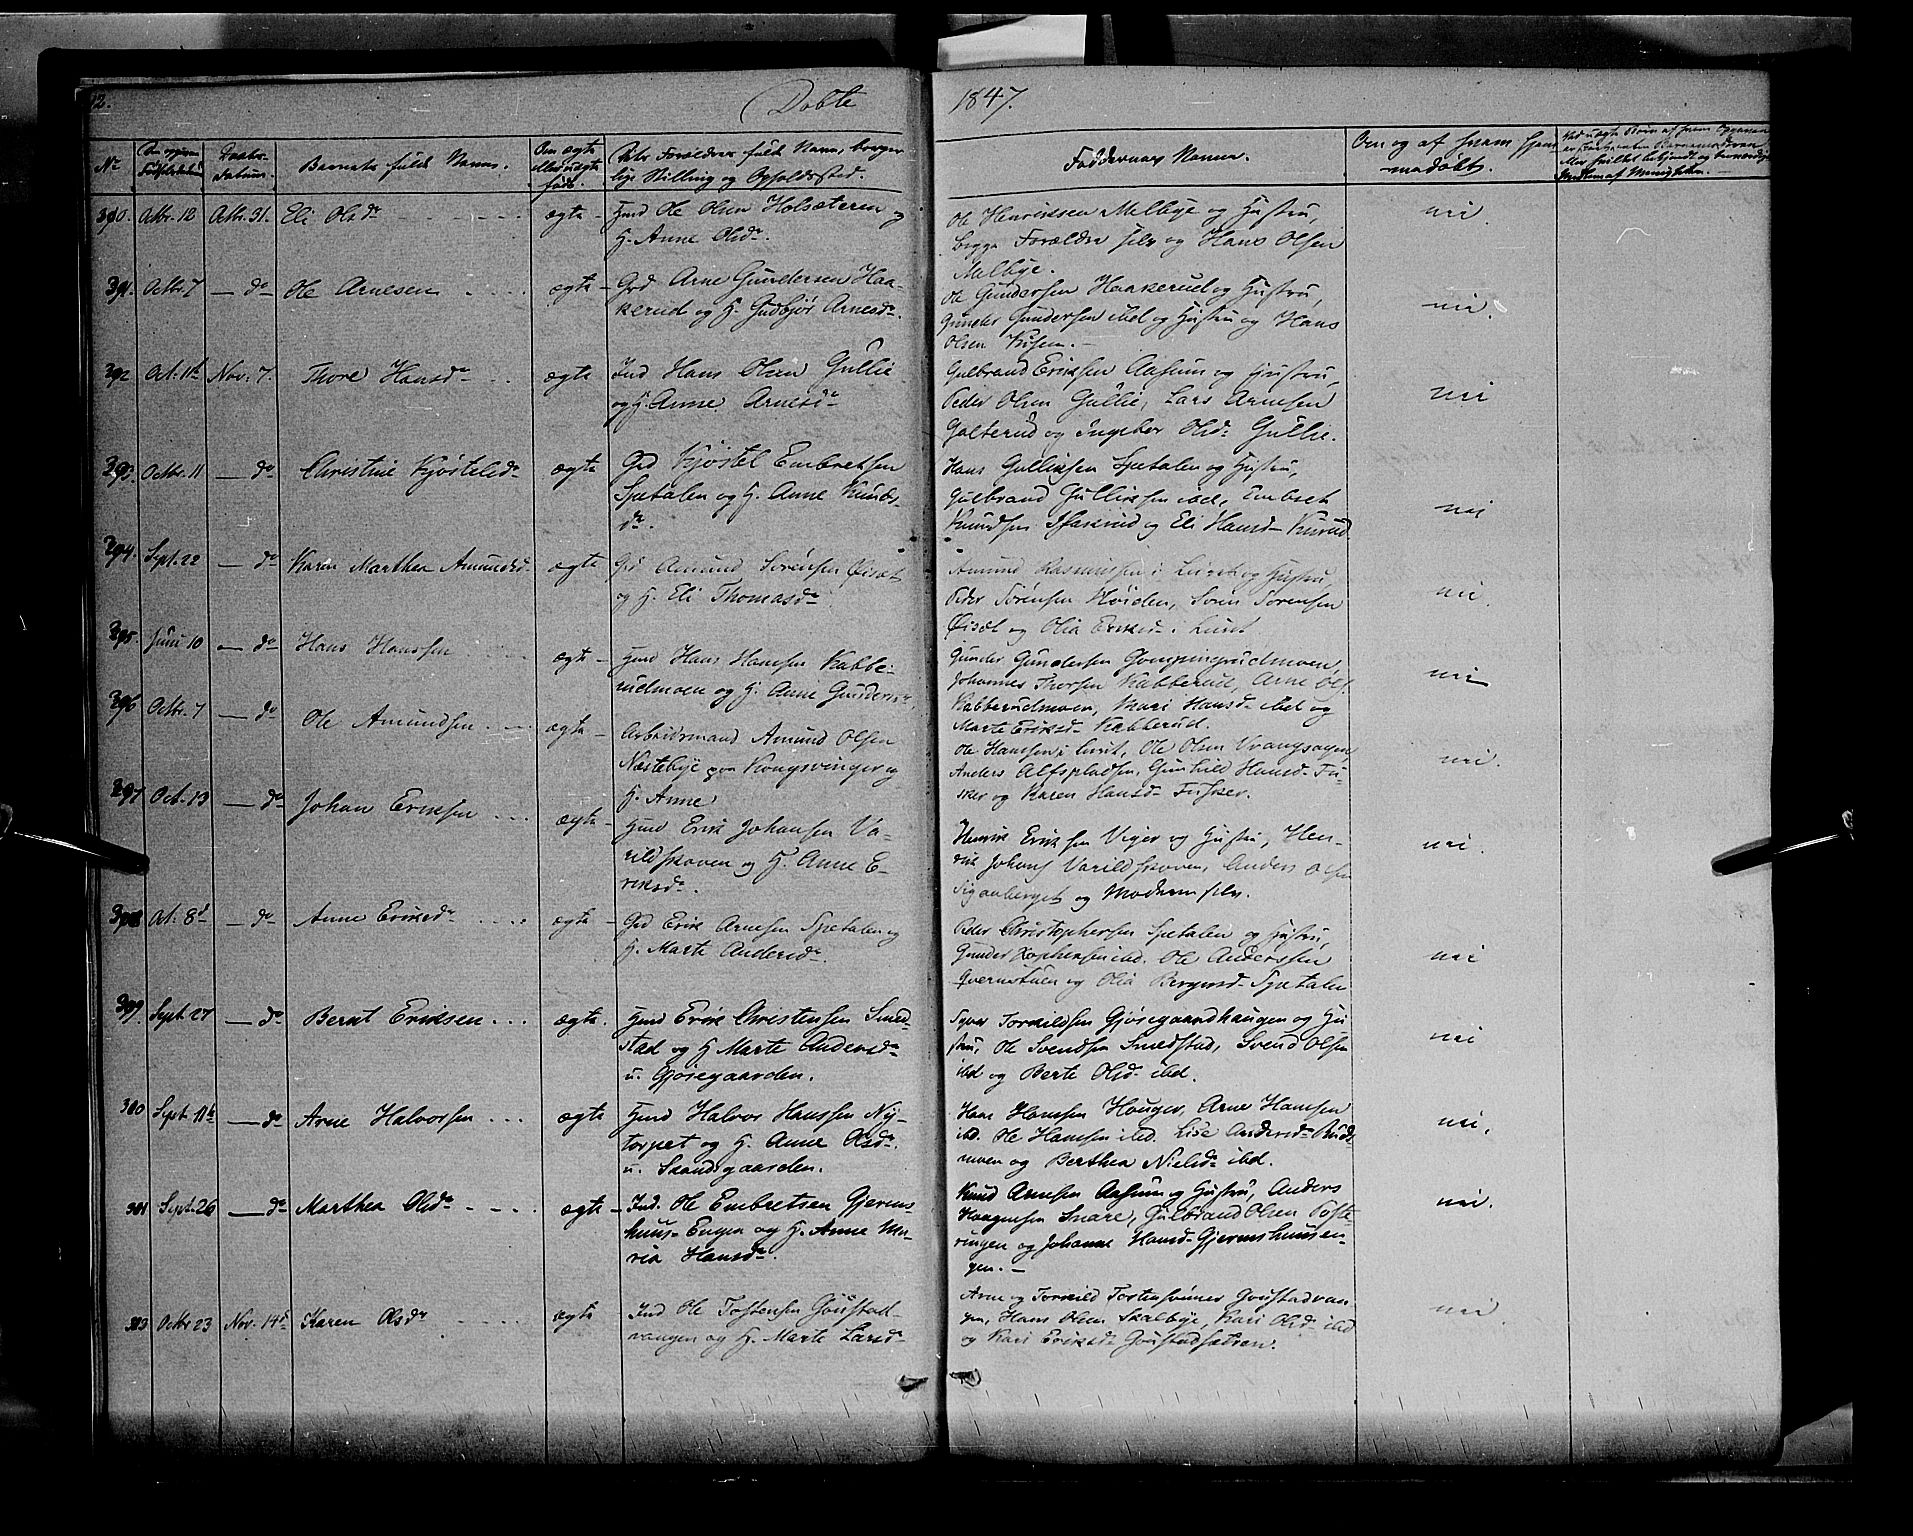 Døbte
1847.
No
Døbte-
datum.
Barnets fulde Navn.
Om ægte
eller uægte
født.
Dets Forældres fulde Navn, borger-
lige Stilling og Opholdssted.
Faddernes Navne.
Om og af hvem hjem-
medøbt.
390. Octbr. 12 Octbr. 31. Eli Olsdr ægte Hmd Ole Olsen Holsæteren og
H. Anne Olsdr.
Ole Henriksen Melbye og Hustru,
begge Forældre selv og Hans Olsen
Melbye.
nei.
391. Octbr. 7 — do Ole Arnesen ægte Grd Arne Gundersen Haa-
kerud og H. Gudbjør Arnesdr.
Ole Gundersen Haakerud og Hustru,
Gunder Gundersen ibd og Hustru og Hans
Olsen
nei.
392 Oct. 11te Nov. 7. Thore Hansdr ægte Ind Hans Olsen Gullie
og H. Anne Arnesdr
Gulbrand Eriksen Aasum og Hustru,
Peder Olsen Gullie, Lars Arnesen
Galterud og Ingebor Olsdr Gullie.
nei
393. Octbr. 11 — do Christine Kjøstelsdr ægte Grd Kjøstel Embretsen
Spetalen og H. Anne Knuds-
dr.
Hans Gulliksen Spetalen og Hustru,
Gulbrand Gulliksen ibd, Embret
Knudsen og Eli Hansd
nei
394. Sept. 22 — do Karen Marthea Amundsd ægte Grd Amund Sørensen Øisæt
og H. Eli Thomasdr
Amund Rasmussen i Lunt og Hustru,
Peder Sørensen Høiden, Sørn Sørensen
Øisæt og Olia Eriksdr i Lunt.
nei.
395. Juni 10 — do Hans Hanssen ægte Hmd Hans Hansen Kabbe-
rudmoen og H. Anne Gundersdr.
Gunder Gundersen
Johannes Thorsen Kabberud, Arne Ols.
Kabberudmoen, Kari Hansd ibd og
Marte Eriksd Kabberud.
nei
396 Octbr. 7 — do Ole Amundsen ægte Arbeidsmand Amund Olsen
Næstebye paa Kongsvinger og
H. Anne
Ole Hanssen i Lint, Ole Olsen Vrangsagen,
Anders Alfspladsen, Gunhild Hansd Fu-
sker og Karen Hansd Fusker.
nei.
397 Oct. 13 — do Johan Eriksen ægte Hmd Erik Johansen Va-
rildskoven og H. Anne E-
riksdr.
Henrik Eriksen Viger og Hustru, Hen-
rik Johans Varildskoven, Anders Olsen
Sigenberget og Moderen selv.
nei.
398 Oct. 8d — do Anne Eriksdr ægte Grd Erik Arnesen Spetalen og
H. Marte Andersdr.
Peder Christophersen Spetalen og Hustru,
Gunder Xophersen ibd. Ole Anderssen
Qvernstuen og Olia Bergersd Spetalen
nei
399. Sept. 27 — do Bernt Eriksen ægte. Hmd Erik Christensen Smed-
stad og H Marte Andersdr
u. Gjøsegaarden.
Syver Torkildsen Gjøsegaardhaugen og Hu-
stru, Ole Svendsen Smedstad, Svend Olsen
ibd og Berte Olsd ibd.
nei
300 Sept. 11te — do Arne Halvorsen ægte Hmd Halvor Hanssen Ny-
torpet og H. Anne Olsdr.
u. Skandsgaarden.
Hans Hansen Houger, Arne Hansen
ibd. Ole Hansen ibd. Lise Andersdr Rud-
moen og Berthea Nielsdr ibd.
nei.
301 Sept. 26 — do Marthea Olsdr ægte Ind. Ole Embretsen Gjerms-
huus-Engen og H. Anne Ma-
ria Hansdr.
Knud Arnesen Aasum og Hustru, Anders
Haagensen Snare, Gulbrand Olsen Tøste-
ringen og Johanne Hansd Gjermshuusen-
gen. —
nei.
303 Octbr 23 Nov. 14d Karen Olsdr ægte Ind Ole Tostensen Goustad-
vangen og H. Marte Larsdr
Arne og Torkild Tostensønner Goustadvan-
gen, Hans Olsen Skalbye, Kari Olsd ibd
og Kari Eriksd Goustadsætren.
nei.